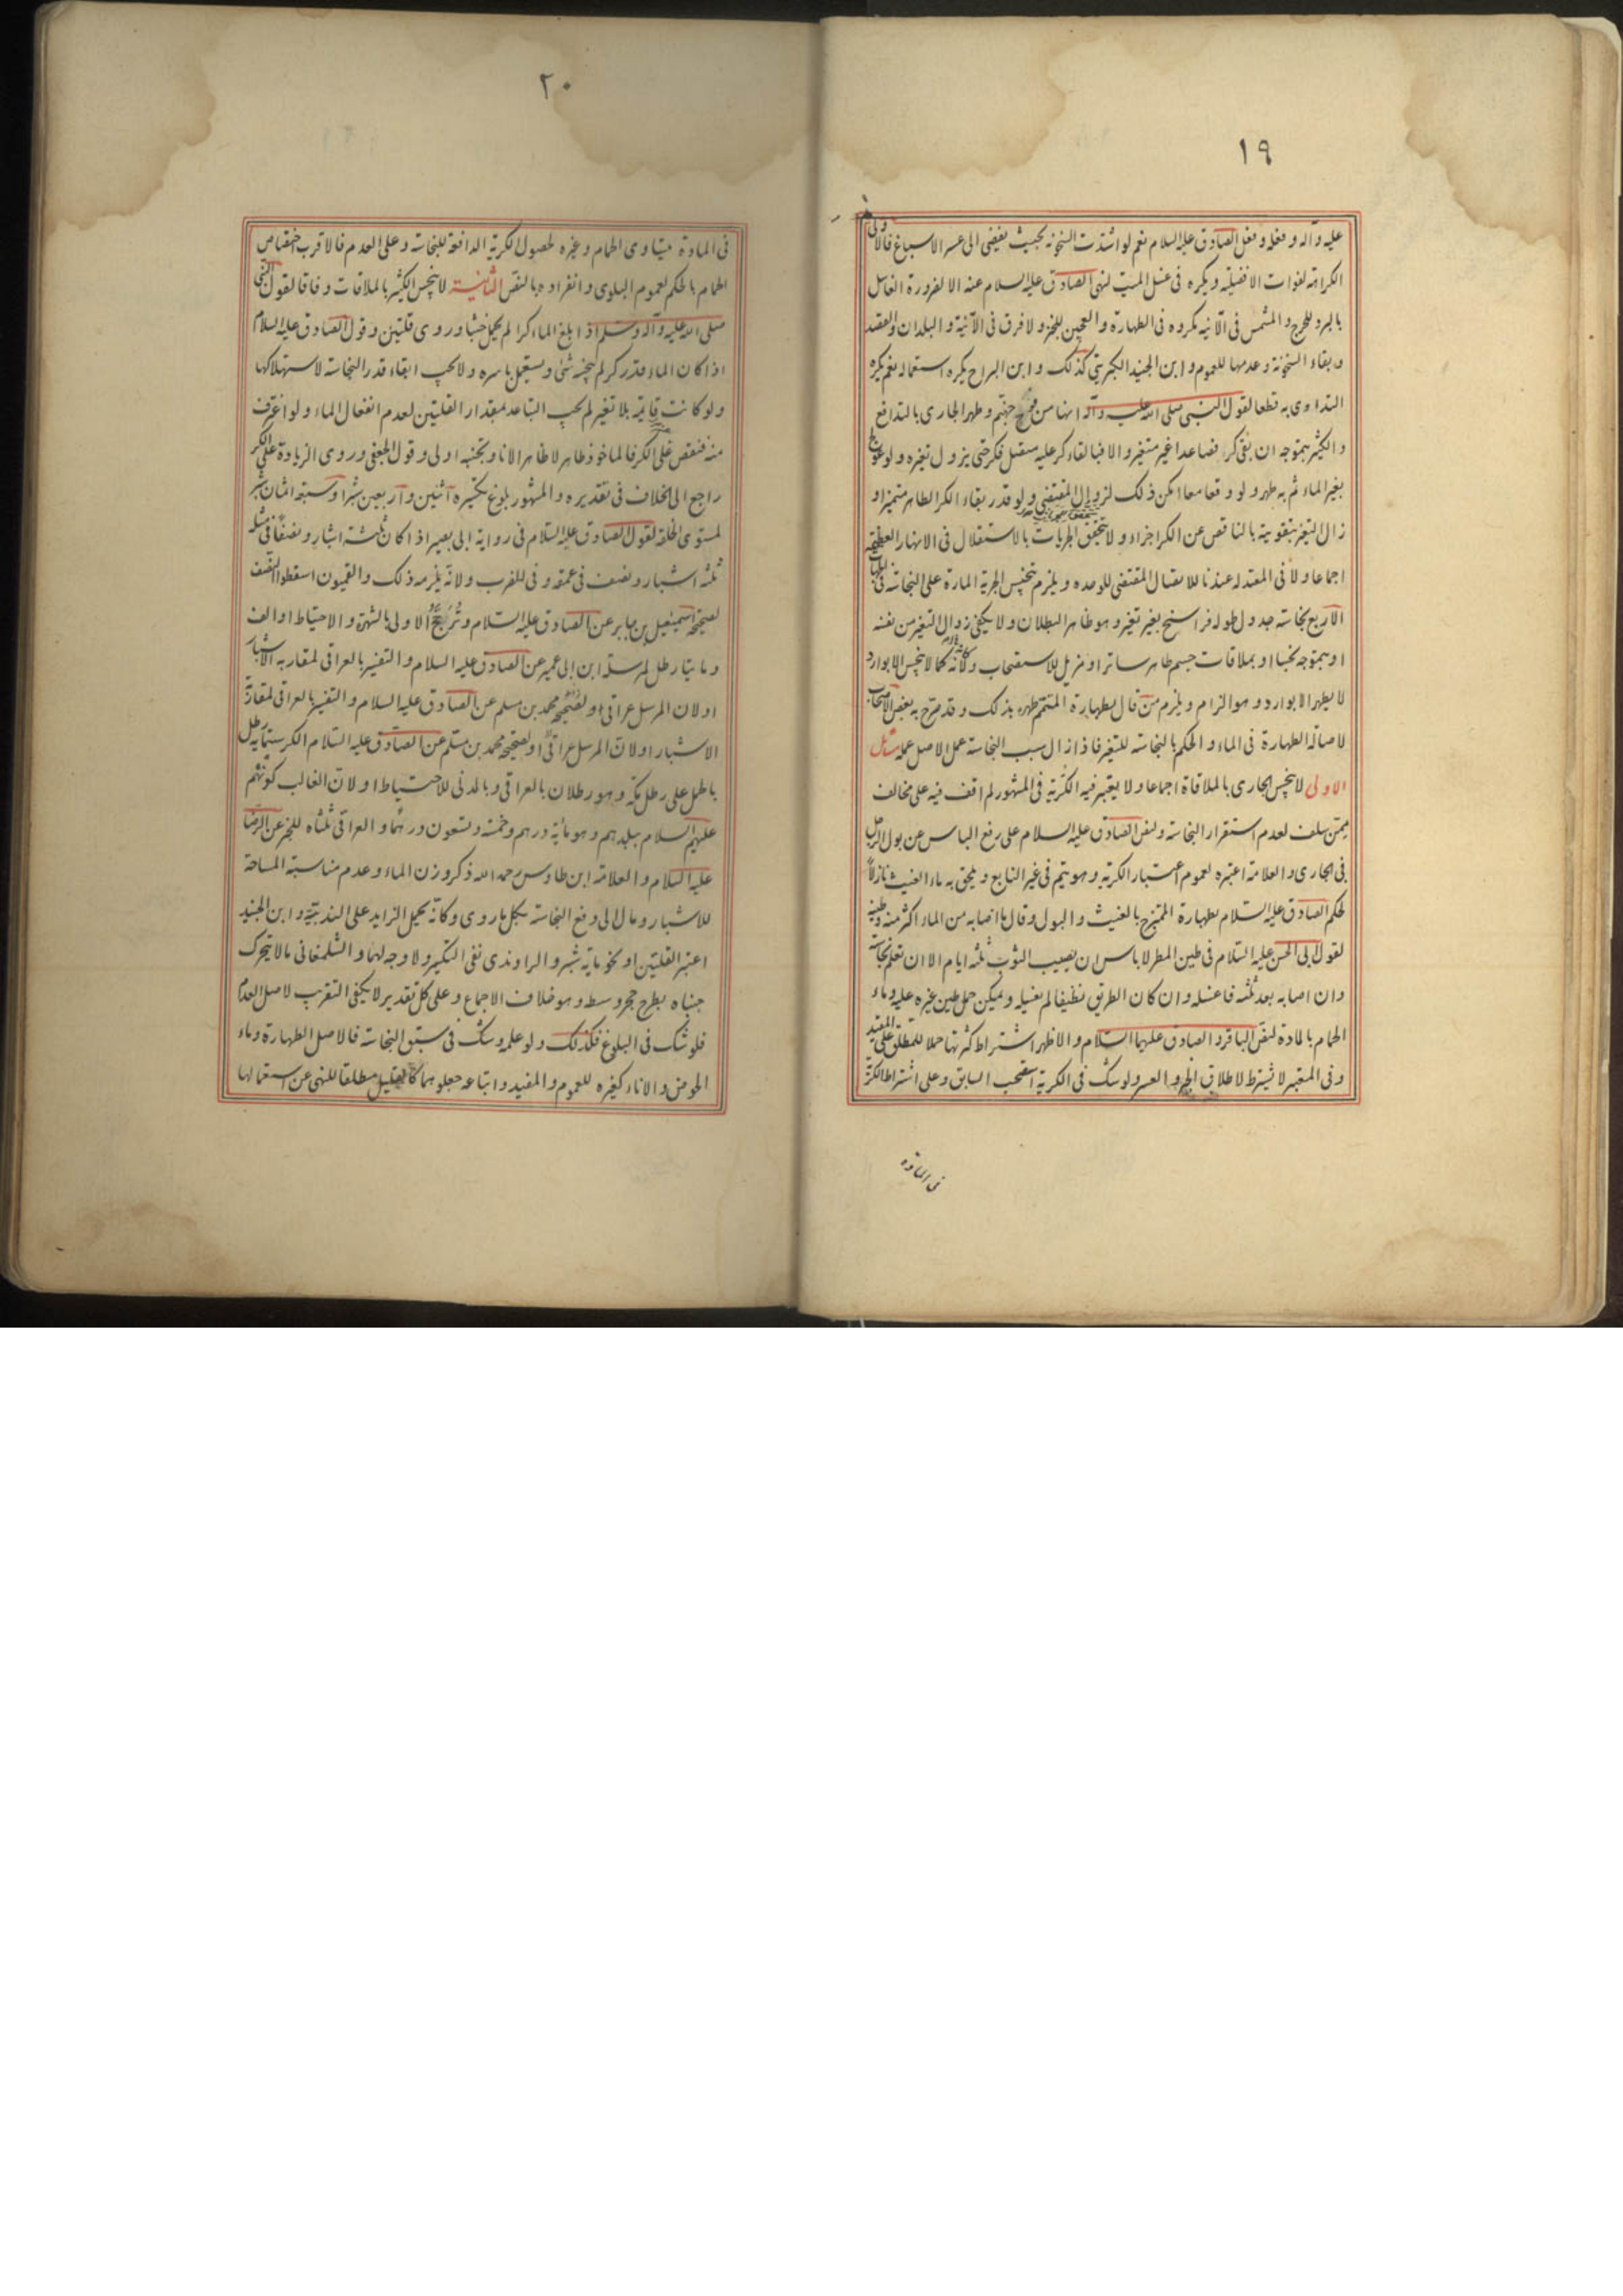 ١٩
عليه وآله وفعله وفعل الصادق عليه السلام نعم لو اشتدت السخونة بحيث يفضى الى عسر الاسباغ فالاولى
الكراهة لفوات الافضلية ويكره فى غسل الميت لنهى الصادق عليه السلام عنه الا لضرورة الغاسل
بالبرد للحرج والمشمس فى الآنية مكروه فى الطهارة والعجين للخبر ولا فرق فى الآنية والبلدان والقصد
وبقاء السخونة وعدمها للعموم وابن الجنيد الكبريتى كذلك وابن البراج يكره استعماله نعم يكره
التداوى به قطعا لقول النبى صلى الله عليه وآله انها من فيح جهنم وطهر الجارى بالتدافع
والكثير بتموجه ان بقى كر فصاعدا غير متغير والا فبالقاء كر عليه متصل فكر حتى يزول تغيره ولو عولج
بغير الماء ثم به طهر ولو وقعا معا امكن ذلك لزوال المقتضى ولو قدر بقاء الكر الطاهر متميزا و
زال التغير بتقويته بالناقص عن الكر اجزاء ولا يتحقق الجريات بالاستقلال فى الانهار العظيمة
اجماعا ولا فى المعتدلة عندنا للاتصال المقتضى للوحدة ويلزم تنجيس الجرية المارة على النجاسة فى الجهات
الاربع نجاسة جدول طوله فراسخ بغير تغير وهو ظاهر البطلان ولا يكفى زوال التغير من نفسه
او بتموجه نجسا او بملاقات جسم طاهر ساترا او مزيل للاستصحاب ولانه كما لا ينجس الا بوارد
لا يطهر الا بوارد وهو الزام ويلزم من قال بطهارة المتمم طهره بذلك وقد صرح به بعض الاصحاب
لاصالة الطهارة فى الماء والحكم بالنجاسة للتغير فاذا زال سبب النجاسة عمل الاصل عمله مسائل
الاولى لا ينجس الجارى بالملاقاة اجماعا ولا يعتبر فيه الكثرية فى المشهور لم اقف فيه على مخالف
ممن سلف لعدم استقرار النجاسة ولنص الصادق عليه السلام على رفع الباس عن بول الرجل
فى الجارى والعلامة اعتبره لعموم اعتبار الكرية وهو يتم فى غير النابع ويلحق به ماء الغيث نازلا
لحكم الصادق عليه السلام بطهارة الممتزج بالغيث والبول وقال ما اصابه من الماء اكثر منه وطينه
لقول ابى الحسن عليه السلام فى طين المطر لا باس ان يصيب الثوب ثلثة ايام الا ان تعلم نجاسة
وان اصابه بعد ثلثة فاغسله وان كان الطريق نظيفا لم تغسله ويمكن حمل طين غيره عليه وماء
الحمام بالمادة لنص الباقر والصادق عليهما السلام والاظهر اشتراط كثرتها حملا للمطلق على المقيد
وفى المعتبر لا يشترط لاطلاق الخبر والعسر ولو شك فى الكرية استصحب السابق وعلى اشتراط الكرية
فى المادة
٢٠
فى المادة يتساوى الحمام وغيره لحصول الكرية الدافعة للنجاسة وعلى العدم فالاقرب اختصاص
الحمام بالحكم لعموم البلوى وانفراده بالنص الثانية لا ينجس الكثير بالملاقات وفاقا لقول النبى
صلى الله عليه وآله وسلم اذا بلغ الماء كرا لم يحمل خبثا وروى قلتين وقول الصادق عليه السلام
اذا كان الماء قدر كر لم ينجسه شئ ويستعمل باسره ولا يجب ابقاء قدر النجاسة لاستهلاكها
ولو كانت قائمة بلا تغير لم يجب التباعد بمقدار القلتين لعدم انفعال الماء ولو اغترف
منه فنقص عن الكر فالماخوذ طاهر لا ظاهر الانا وتجنبه اولى وقول الجعفى وروى الزيادة على الكر
راجع الى الخلاف فى تقديره والمشهور بلوغ تكسيره اثنين واربعين شبرا وسبعة اثمان شبر
لمستوى الخلقة لقول الصادق عليه السلام فى رواية ابى بصير اذا كان ثلثة اشبار ونصفا فى مثله
ثلثة اشبار ونصف فى عمقه وفى للضرب ولانه يلزمه ذلك والقميون اسقطوا النصف
لصحيحة اسمعيل بن جابر عن الصادق عليه السلام وترجح الاولى بالشهرة والاحتياط او الف
وماتا رطل لمرسلة ابن ابى عمير عن الصادق عليه السلام والتفسير بالعراقى لمقاربة الاشبار
او لان المرسل عراقى او لصحيحة محمد بن مسلم عن الصادق عليه السلام والتفسير بالعراقى لمقاربة
الاشبار او لان المرسل عراقى او لصحيحة محمد بن مسلم عن الصادق عليه السلام الكر ستمائة رطل
باطل على رطل مكة وهو رطلان بالعراقى وبالمدنى للاحتياط او لان الغالب كونهم
عليهم السلام ببلدهم وهو مائة درهم وخمسة وتسعون درهما والعراقى ثلثاه للخبر عن الرضا
عليه السلام والعلامة ابن طاوس رحمه الله ذكر وزن الماء وعدم مناسبة المساحة
للاشبار ومال الى دفع النجاسة بكل ما روى وكانه يحمل الزايد على الندبية وابن الجنيد
اعتبر القلتين او نحو ماية شبر والراوندى نفى التكسير ولا وجه لهما والشلمغانى ما لا يتحرك
جنباه بطرح حجر وسطه وهو خلاف الاجماع وعلى كل تقدير لا يكفى التقريب لاصل العدم
فلو شك فى البلوغ فكذلك ولو علمه وشك فى سبق النجاسة فالاصل الطهارة وماء
الحوض والاناء كغيره للعموم والمفيد واتباعه جعلوهما كالقليل مطلقا للنهى عن استعمالها